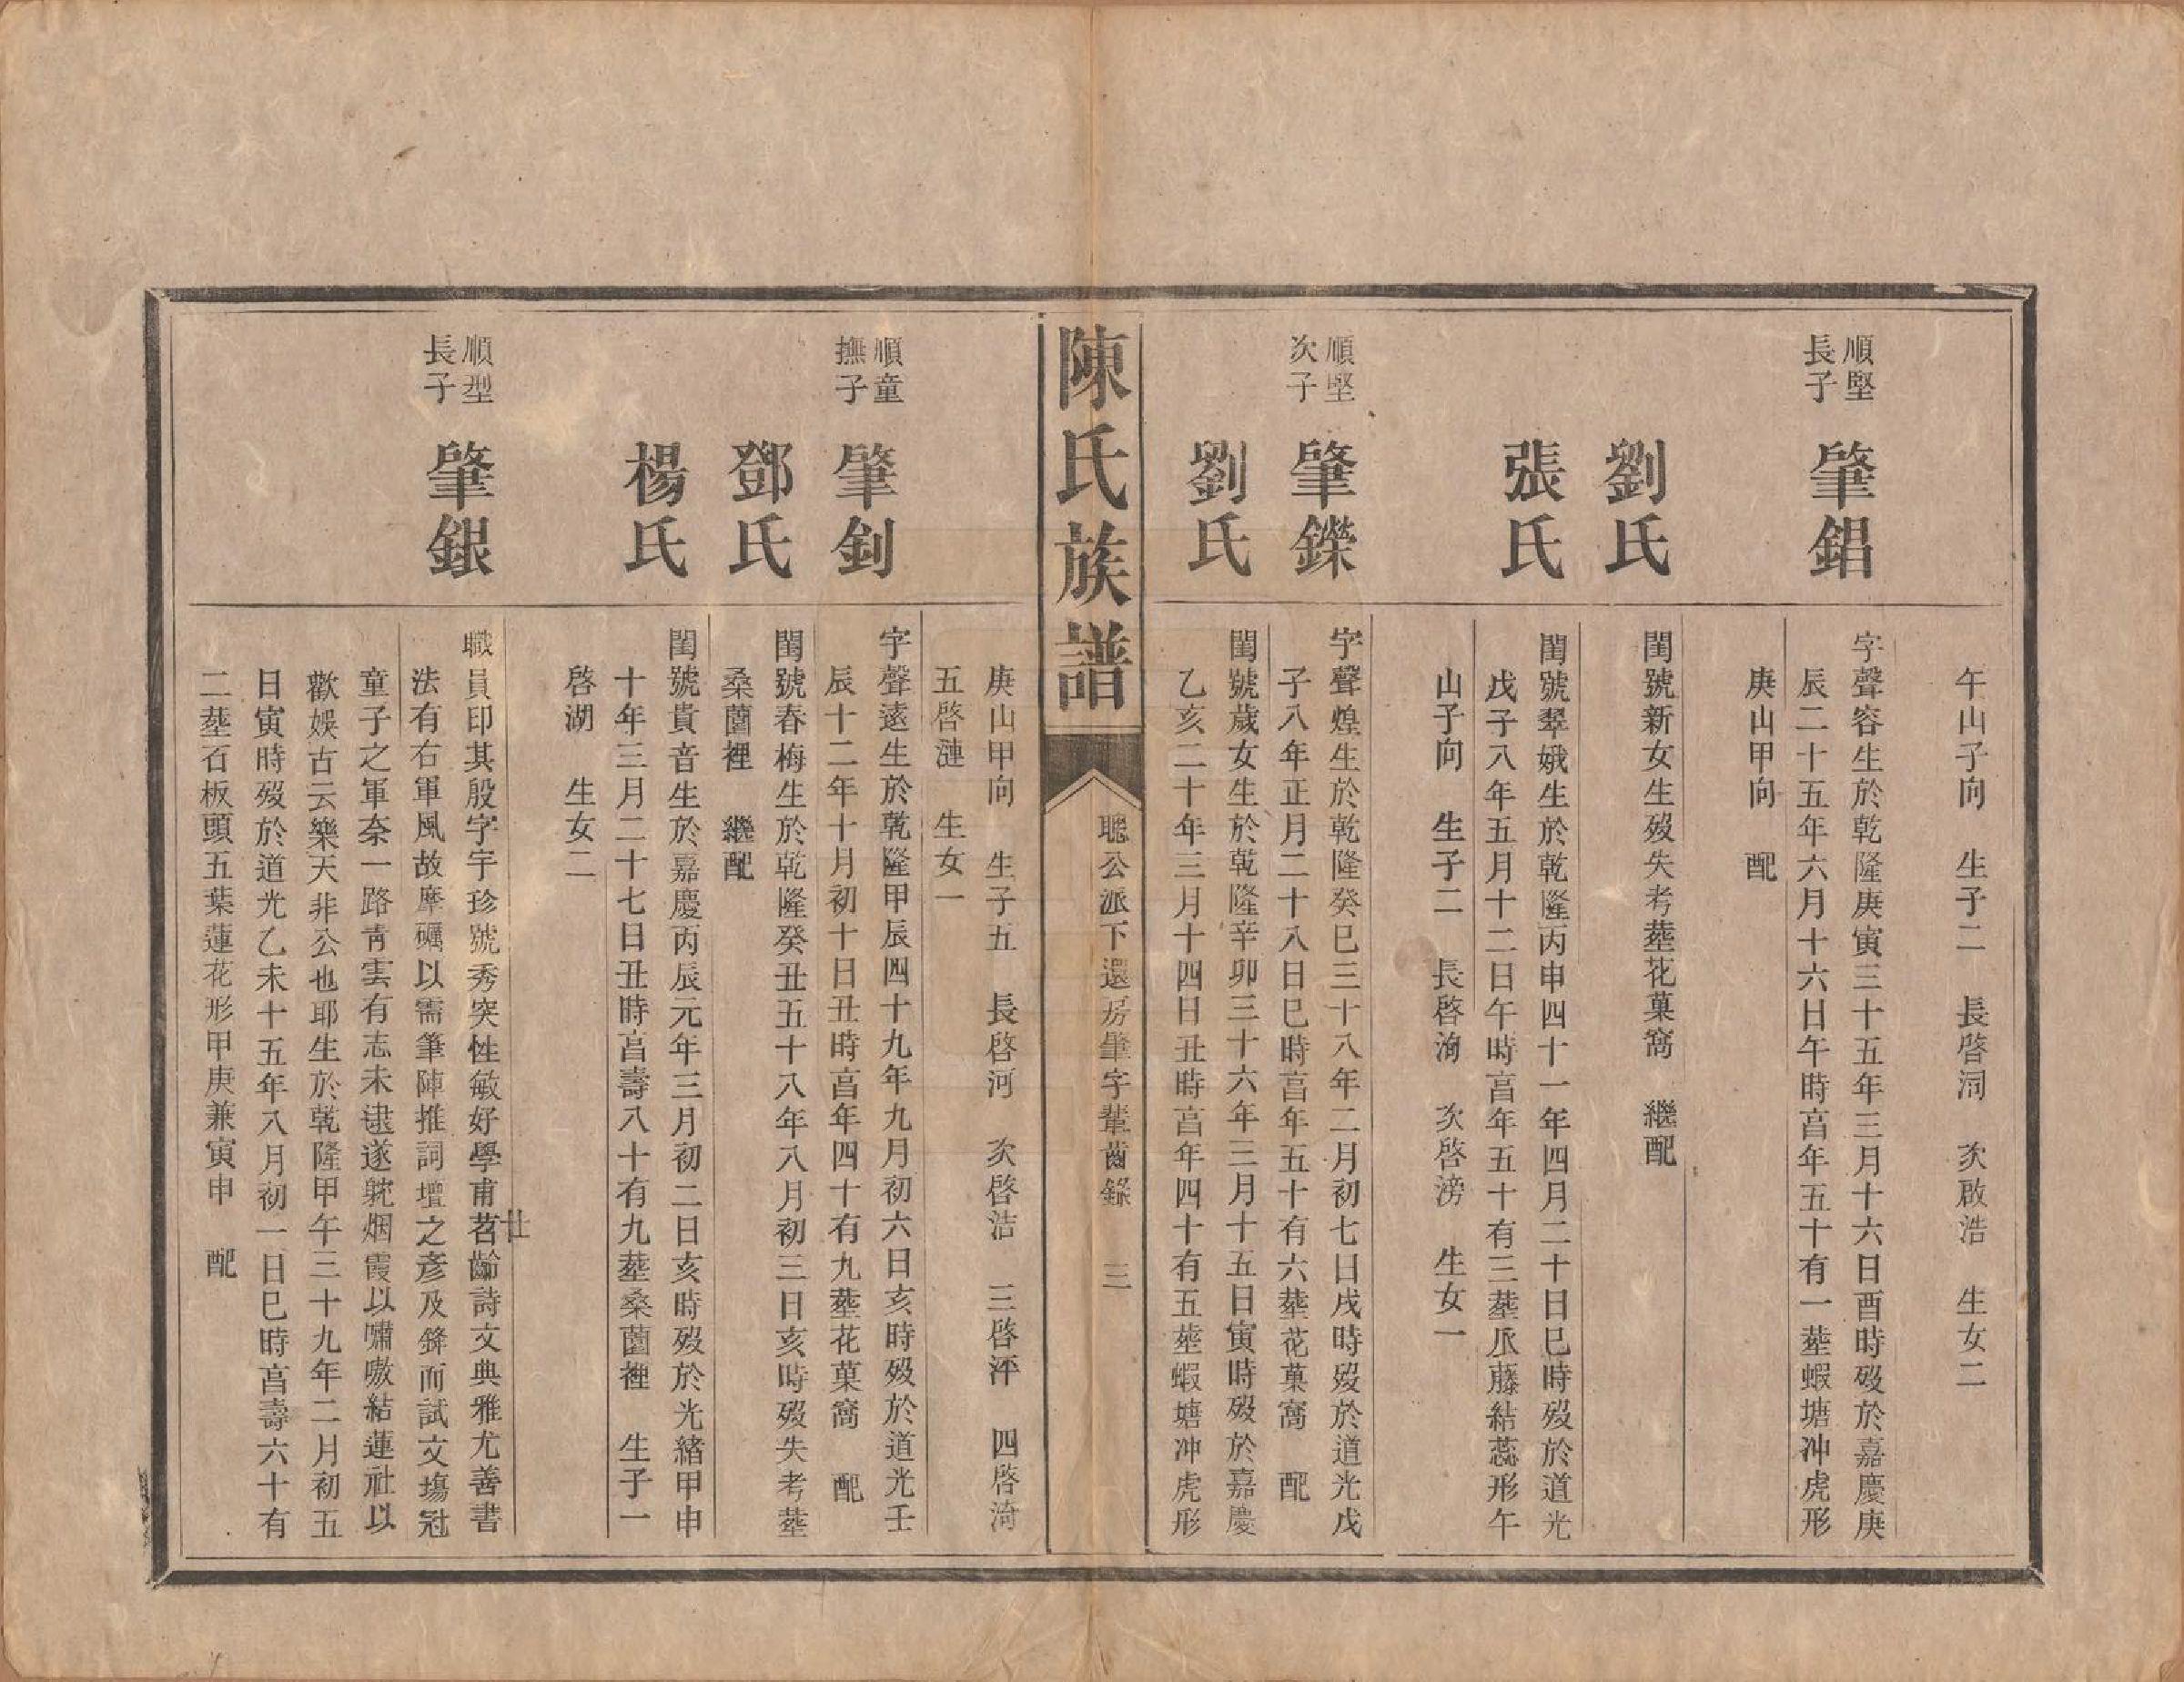 午山子向　生子二　長啓洞　次啟浩　生女二
順堅
長子
肇錩
字聲容生於乾隆庚寅三十五年三月十六日酉時歿於嘉慶庚
辰二十五年六月十六日午時亯年五十有一塟蝦塘冲虎形
庚山甲向　配
劉氏
閨號新女生歿失考塟花菓窩　繼配
張氏
閨號翠娥生於乾隆丙申四十一年四月二十日巳時歿於道光
戊子八年五月十二日午時亯年五十有三塟瓜藤結蕊形午
山子向　生子二　長啓洵　次啓滂　生女一
順堅
次子
肇鑠
字聲煌生於乾隆癸巳三十八年二月初七日戌時歿於道光戊
子八年正月二十八日巳時亯年五十有六塟花菓窩　配
劉氏
閨號歲女生於乾隆辛卯三十六年三月十五日寅時歿於嘉慶
乙亥二十年三月十四日丑時亯年四十有五塟蝦塘冲虎形
陳氏族譜
聰公派下還房肇字輩齒錄　三
庚山甲向　生子五　長啓河　次啓洁　三啓泙　四啓渏
五啓漣　生女一
順童
撫子
肇釗
字聲遠生於乾隆甲辰四十九年九月初六日亥時歿於道光壬
辰十二年十月初十日丑時亯年四十有九塟花菓窩　配
鄧氏
閨號春梅生於乾隆癸丑五十八年八月初三日亥時歿失考塟
桑薗裡　繼配
楊氏
閨號貴音生於嘉慶丙辰元年三月初二日亥時歿於光緒甲申
十年三月二十七日丑時亯壽八十有九塟桑薗裡　生子一
啓湖　生女二
順型
長子
肇銀
職員印其殷字宇珍號秀突性敏好學甫苕齡詩文典雅尤善書
廿
法有右軍風故摩礪以需筆陣推詞壇之彥及鋒而試文塲冠
童子之軍奈一路靑雲有志未逮遂躭烟霞以嘯嗷結蓮社以
歡娛古云樂天非公也耶生於乾隆甲午三十九年二月初五
日寅時歿於道光乙未十五年八月初一日巳時亯壽六十有
二塟石板頭五葉蓮花形甲庚兼寅申　配